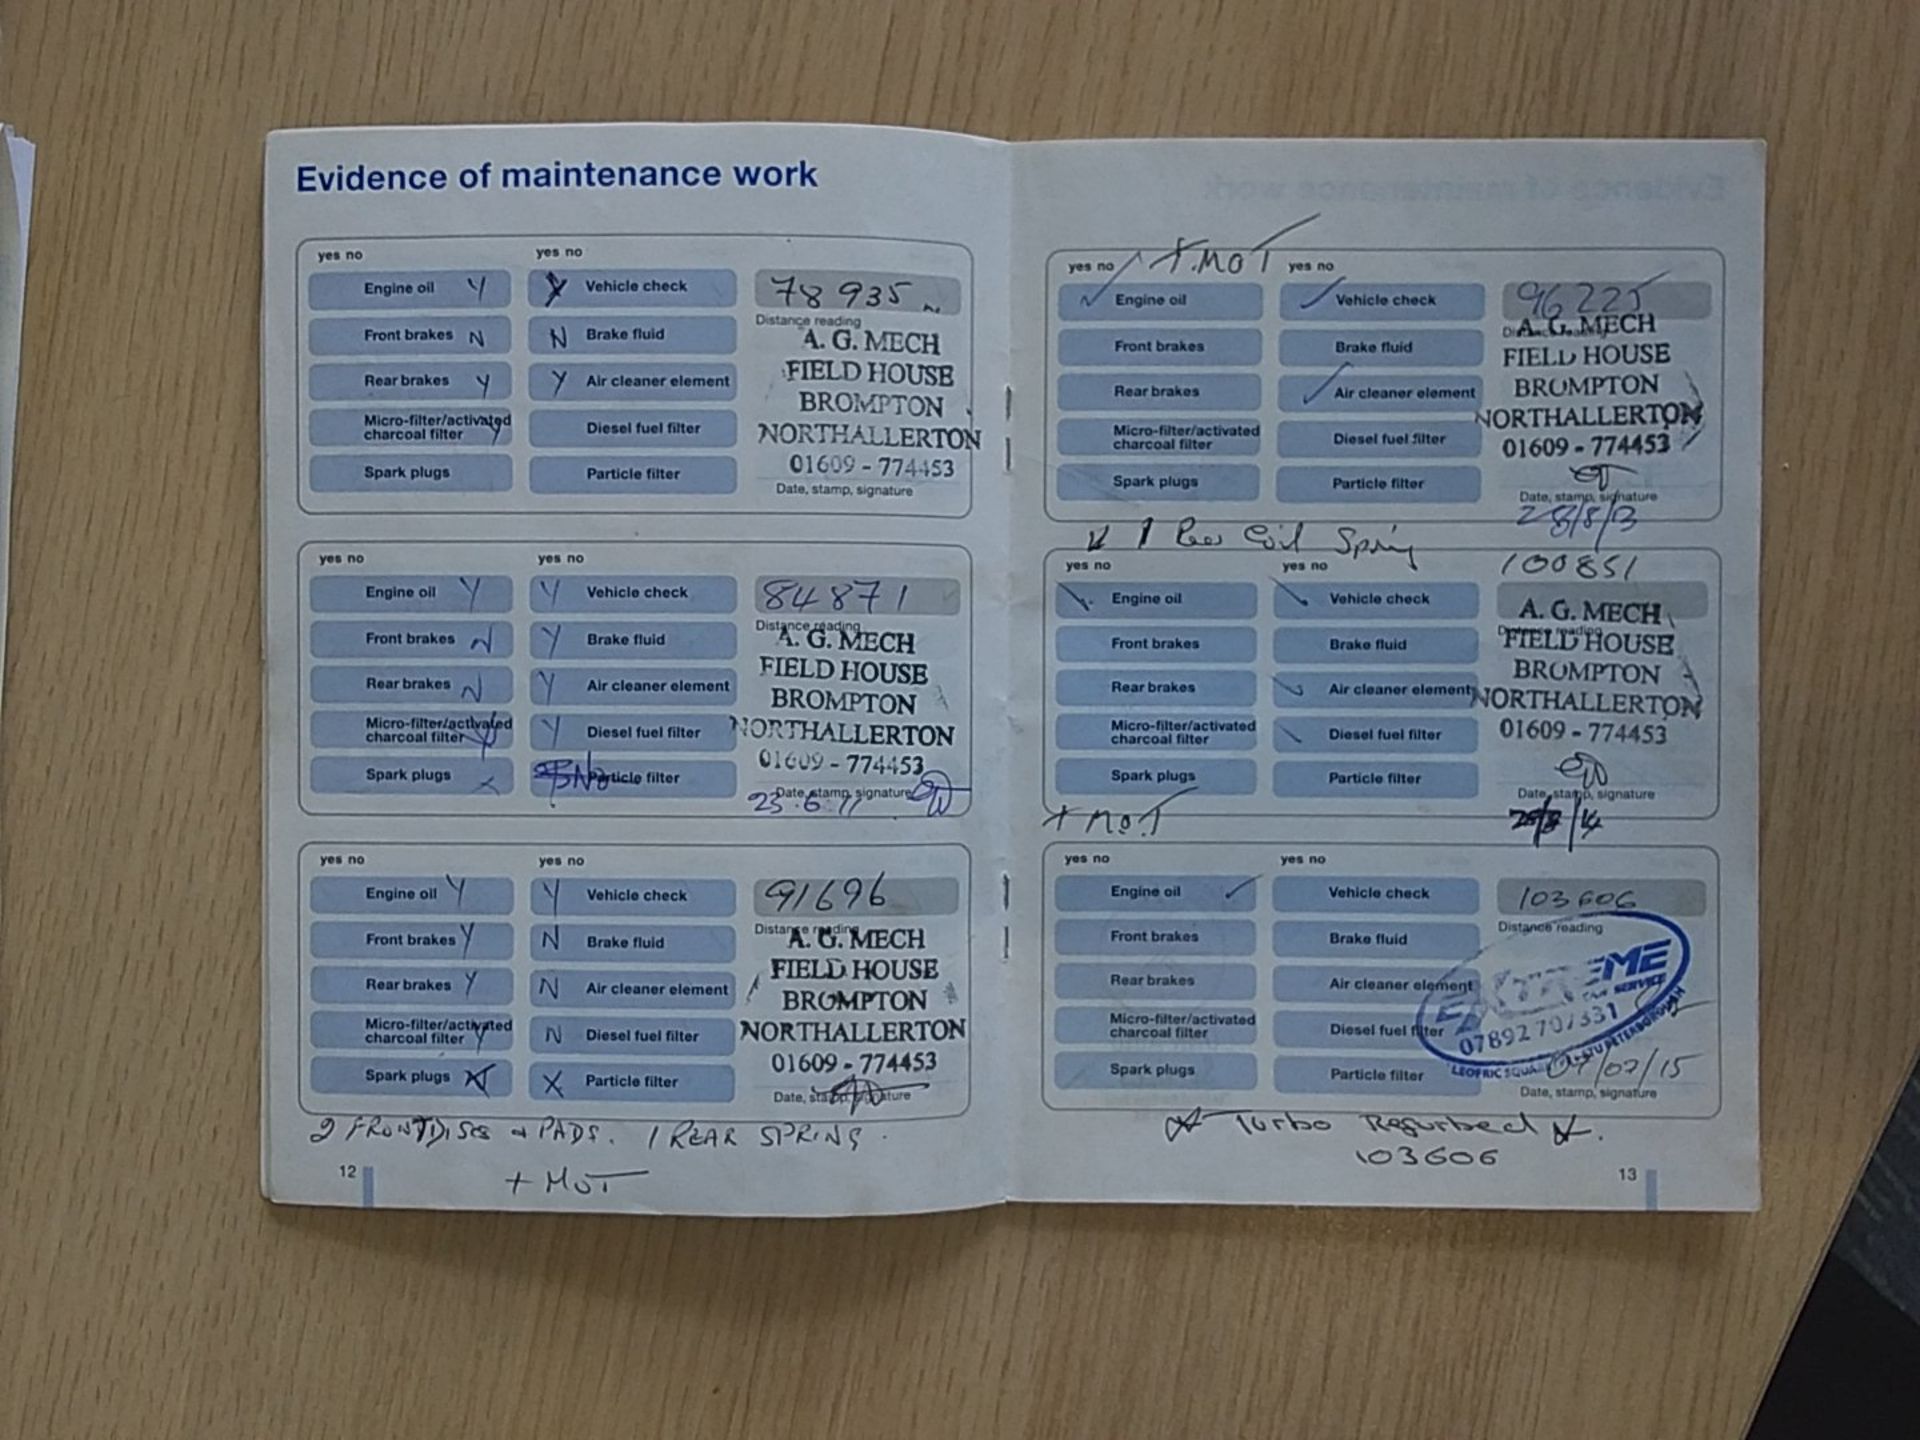 Evidence of maintenance work
yes no
yes no
Engine oil Y
Y Vehicle check
78 935
Front brakes N
N Brake fluid
Distance reading
A. G. MECH
Rear brakes Y
Y Air cleaner element
FIELD HOUSE
BROMPTON
Micro-filter/activated
charcoal filter Y
Diesel fuel filter
NORTHALLERTON
Spark plugs
Particle filter
01609 - 774453
Date, stamp, signature
yes no
yes no
Engine oil Y
Y Vehicle check
84871
Front brakes N
Y Brake fluid
Distance reading
A. G. MECH
Rear brakes N
Y Air cleaner element
FIELD HOUSE
BROMPTON
Micro-filter/activated
charcoal filter Y
Y Diesel fuel filter
NORTHALLERTON
Spark plugs
No Particle filter
01609 - 774453
Date, stamp, signature
23.6.11
yes no
yes no
Engine oil Y
Y Vehicle check
91696
Front brakes Y
N Brake fluid
Distance reading
A. G. MECH
Rear brakes Y
N Air cleaner element
FIELD HOUSE
BROMPTON
Micro-filter/activated
charcoal filter Y
N Diesel fuel filter
NORTHALLERTON
Spark plugs
X Particle filter
01609 - 774453
Date, stamp, signature
2 FRONT DISCS + PADS. 1 REAR SPRING.
+ MOT
12
+ MOT
yes no
yes no
Engine oil
Vehicle check
96225
Distance reading
A. G. MECH
Front brakes
Brake fluid
FIELD HOUSE
Rear brakes
Air cleaner element
BROMPTON
NORTHALLERTON
Micro-filter/activated
charcoal filter
Diesel fuel filter
01609 - 774453
Spark plugs
Particle filter
Date, stamp, signature
28/8/13
1 Rear Coil Spring
yes no
yes no
100851
Engine oil
Vehicle check
A. G. MECH
Distance reading
Front brakes
Brake fluid
FIELD HOUSE
BROMPTON
Rear brakes
Air cleaner element
NORTHALLERTON
Micro-filter/activated
charcoal filter
Diesel fuel filter
01609 - 774453
Spark plugs
Particle filter
Date, stamp, signature
+ MOT
yes no
yes no
Engine oil
Vehicle check
103606
Distance reading
Front brakes
Brake fluid
EXTREME
Rear brakes
Air cleaner element
SERVICE
Micro-filter/activated
charcoal filter
Diesel fuel filter
07892 707331
LEOFRIC SQUARE
PETERBOROUGH
Spark plugs
Particle filter
07/07/15
Date, stamp, signature
Turbo Refurbed
103606
13